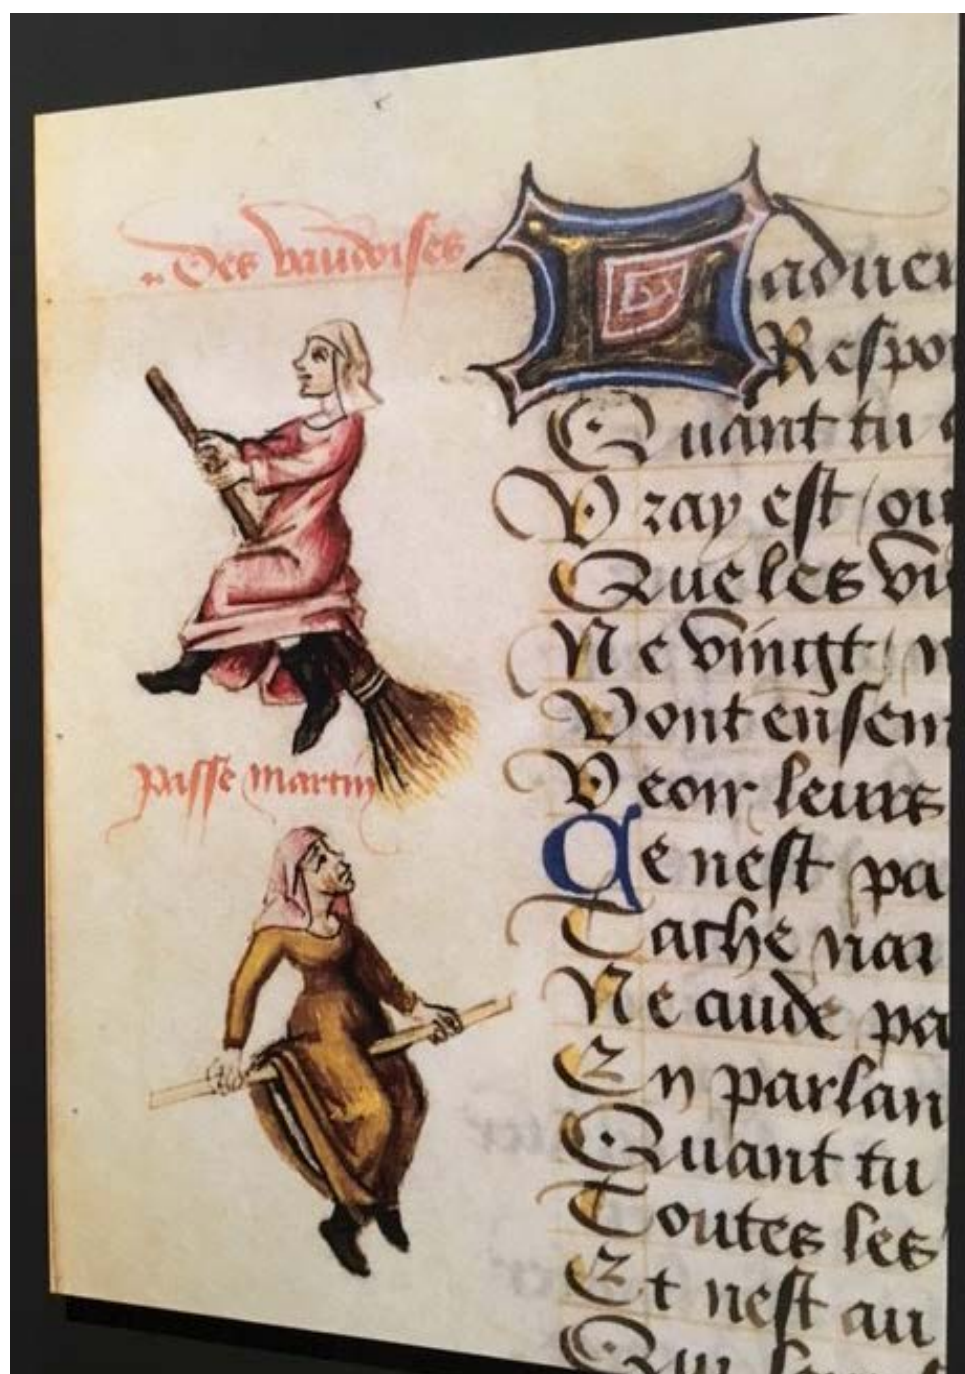 Des vaudoises
passe martin
Laduer
Respo
Quant tu
Vray est / ou
Que les vi
Ne vingt / n
Vont ensem
Veoir leurs
Ce nest pa
Tache nar
Ne aude pa
En parlan
Quant tu
Toutes les
Et nest au
Qui